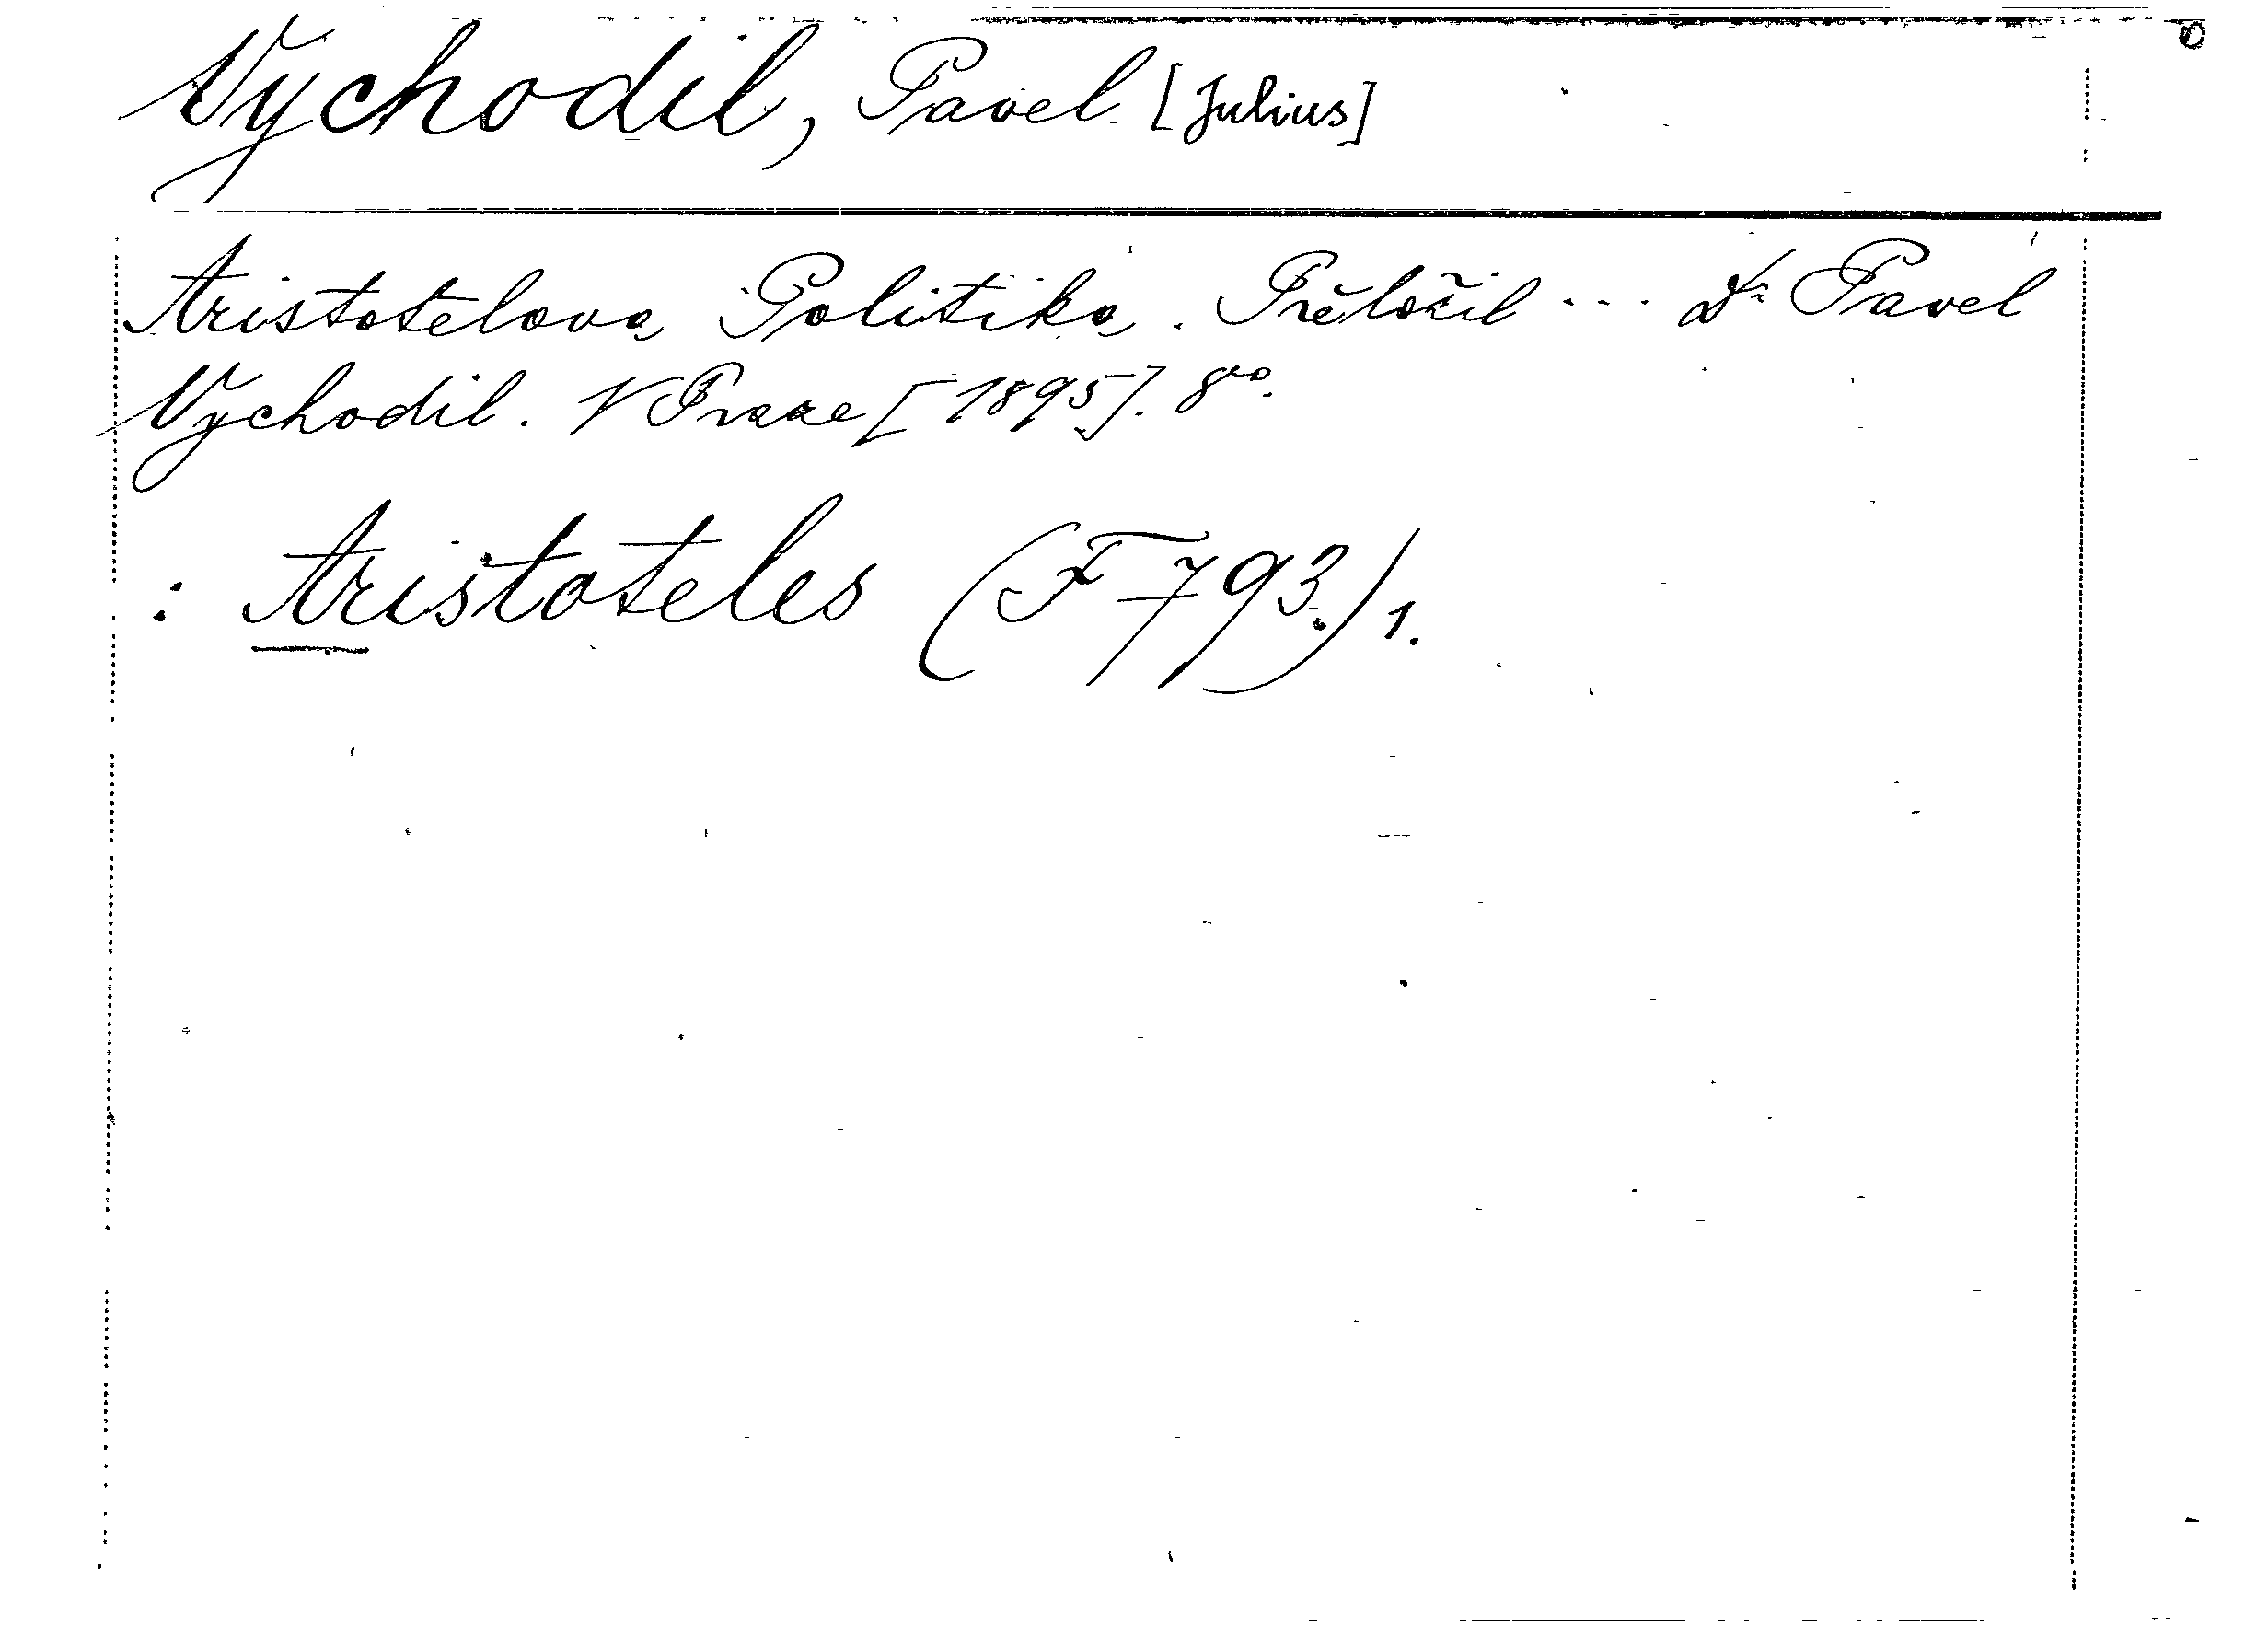 Vychodil, Pavel [Julius]
Aristotelova Politika. Přeložil ... Dr Pavel
Vychodil. V Praze [1895]. 8vo.
: Aristoteles (F 793.) 1.